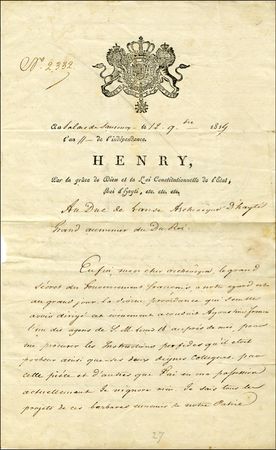 N° 2382
Au Palais de Sansouci, le 12 9bre 1814
l'an 11 de l'indépendance.
HENRY,
Par la grâce de Dieu et la Loi Constitutionnelle de l'État,
Roi d'Hayti, etc. etc. etc,
Au Duc de Archevêque d'hayti
Grand aumonier du Roi.
Enfin mon cher archevêque, le grand
du Gouvernement français a notre égard est
au grand jour la divine providence qui
avoir dirigé
l'un des de S. M. auprès de moi, pour
me procurer les Instructions perfides qu'il était
porteur ainsi que ses deux dignes collegues, par
cette pièce et d'autres que j'ai en ma possession
actuellement Je n'ignore rien. Je sais tous les
projets de ces barbares ennemis de notre Patrie
27